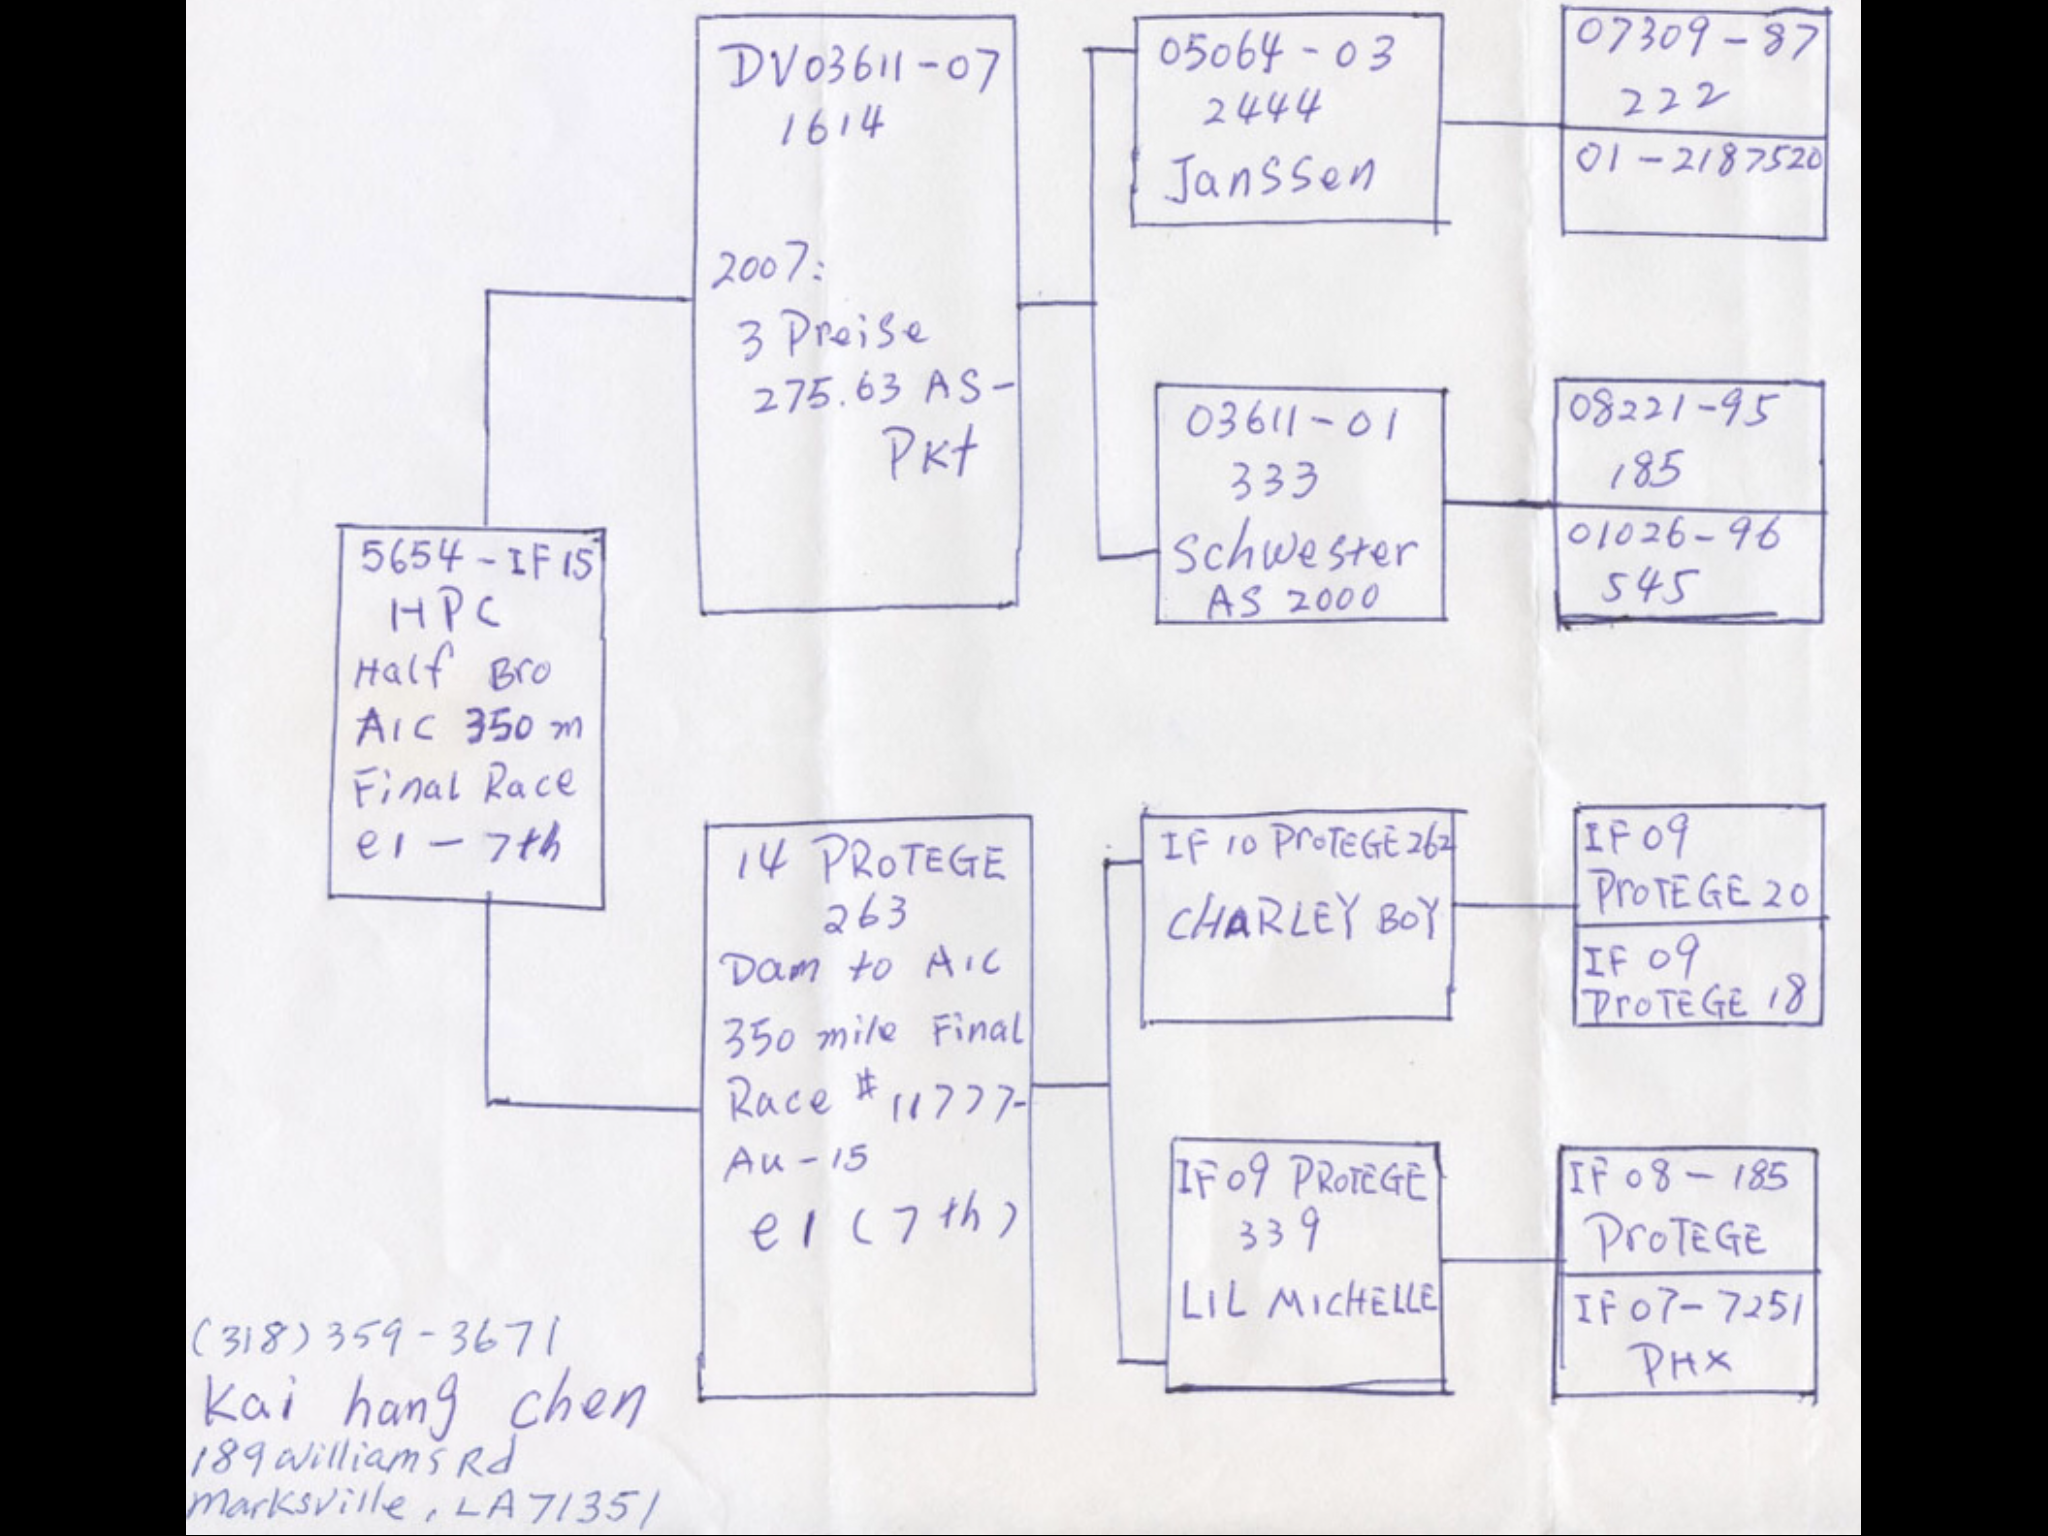 5654-IF15
HPC
Half Bro
AIC 350 m
Final Race
e1 - 7th
DV03611-07
1614
2007:
3 Preise
275.63 AS-
Pkt
14 PROTEGE
263
Dam to AIC
350 mile Final
Race # 11777-
AU-15
e1 (7th)
05064-03
2444
Janssen
03611-01
333
Schwester
AS 2000
IF 10 ProTEGE 262
CHARLEY BOY
IF 09 PROTEGE
339
LIL MICHELLE
07309-87
222
01-2187520
08221-95
185
01026-96
545
IF 09
ProTEGE 20
IF 09
ProTEGE 18
IF 08-185
ProTEGE
IF 07-7251
PHX
(318)359-3671
Kai hang chen
189 Williams Rd
Marksville, LA 71351